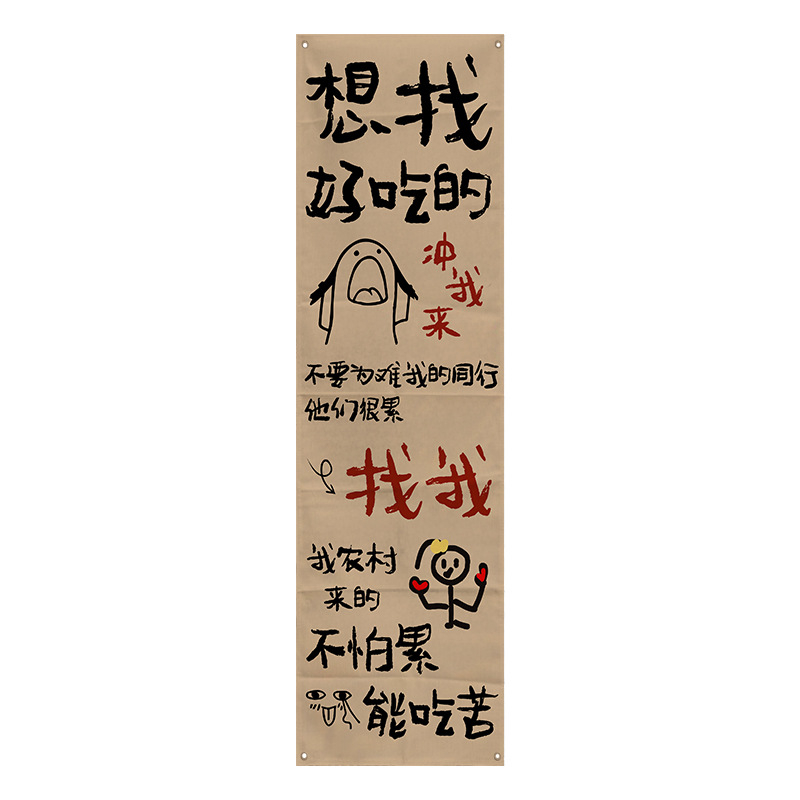 想找
好吃的
冲
我
来
不要为难我的同行
他们很累
找我
我农村
来的
不怕累
能吃苦